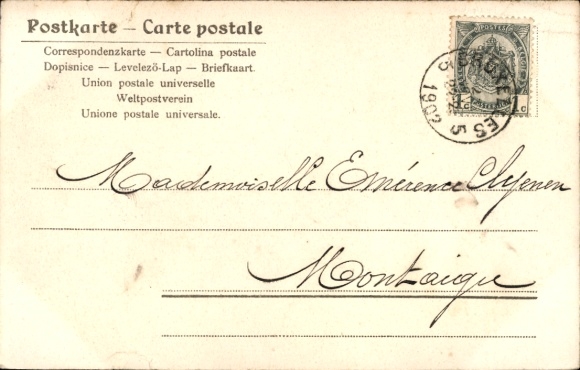 Postkarte — Carte postale
Correspondenzkarte — Cartolina postale
Dopisnice — Levelező-Lap — Briefkaart.
Union postale universelle
Weltpostverein
Unione postale universale.
BRUXELLES 5
Mademoiselle Emérence
Montaigu